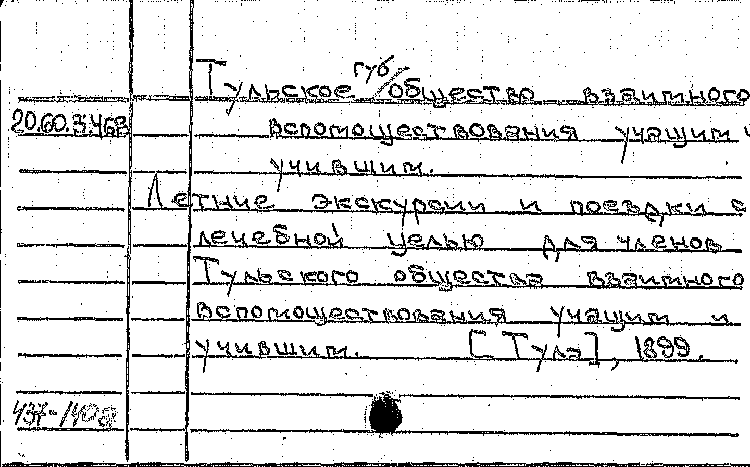 губ
Тульское общество взаимного
20.60.3.468
вспомоществования учащим и
учившим.
Летние экскурсии и поездки с
лечебной целью для членов
Тульского общества взаимного
вспомоществования учащим и
учившим. [Тула], 1899.
437-1408